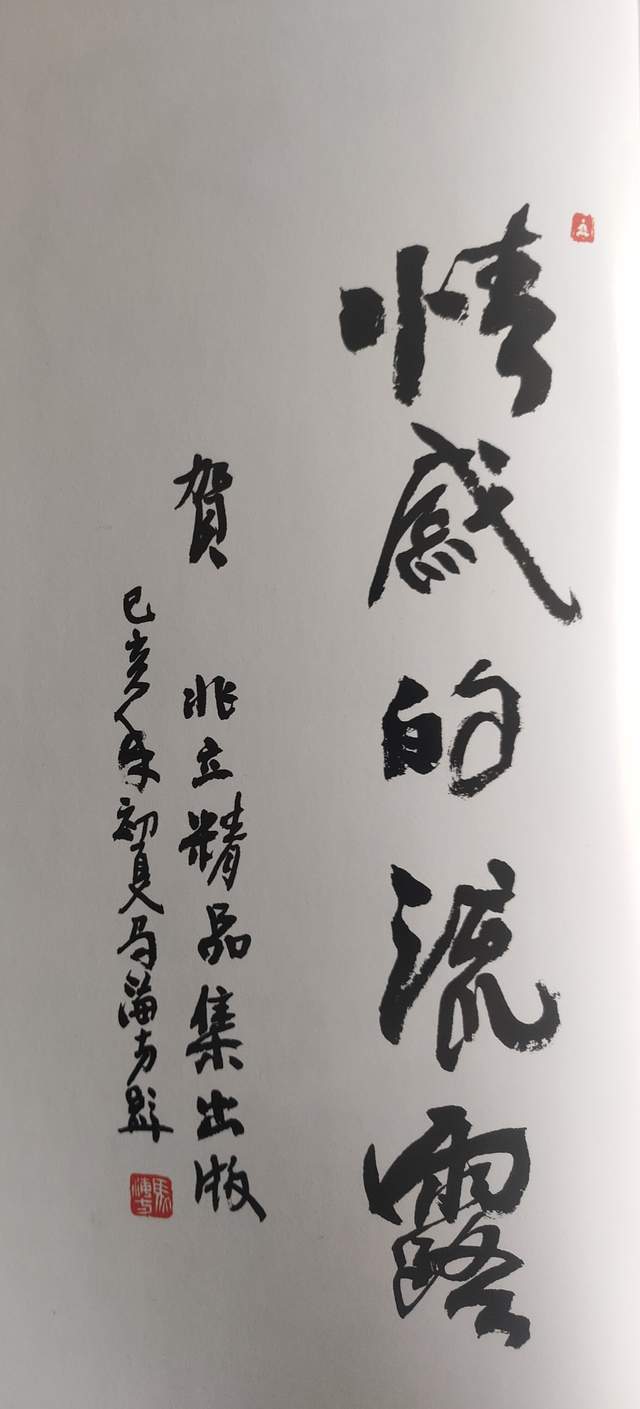 情感的流露
賀 兆立精品集出版
己亥年初夏马海方题